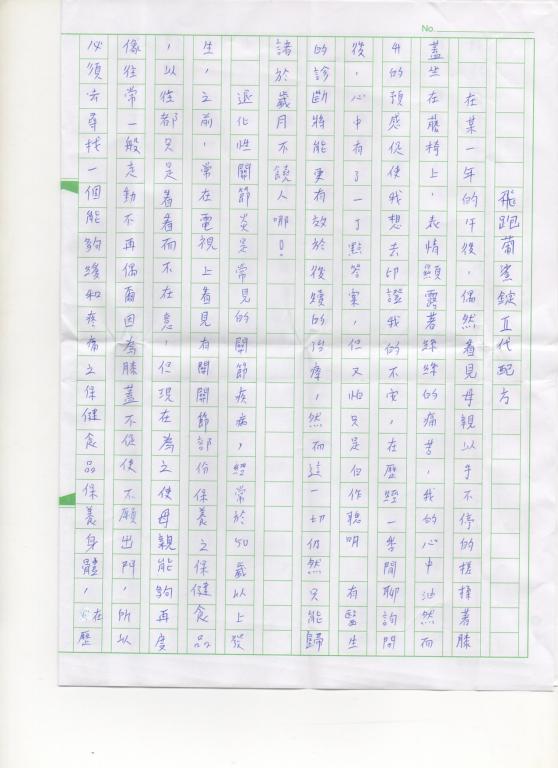 No.
飛跑葡鯊錠五代配方
在某一年的午後,偶然看見母親以手不停的搓揉著膝
蓋坐在藤椅上,表情顯露著絲絲的痛苦,我的心中油然而
升的預感促使我想去印證我的不安,在歷經一番閒聊詢問
後,心中有了一丁點答案,但又怕只是自作聰明,有醫生
的診斷將能更有效於後續的治療,然而這一切仍然只能歸
諸於歲月不饒人哪!
退化性關節炎是常見的關節疾病,經常於50歲以上發
生,之前,常在電視上看見有關關節部份保養之保健食品
,以往都只是看看而不在意,但現在為之使母親能夠再度
像往常一般走動不再偶爾因為膝蓋不促使不願出門,所以
必須去尋找一個能夠緩和疼痛之保健食品保養身體,在歷